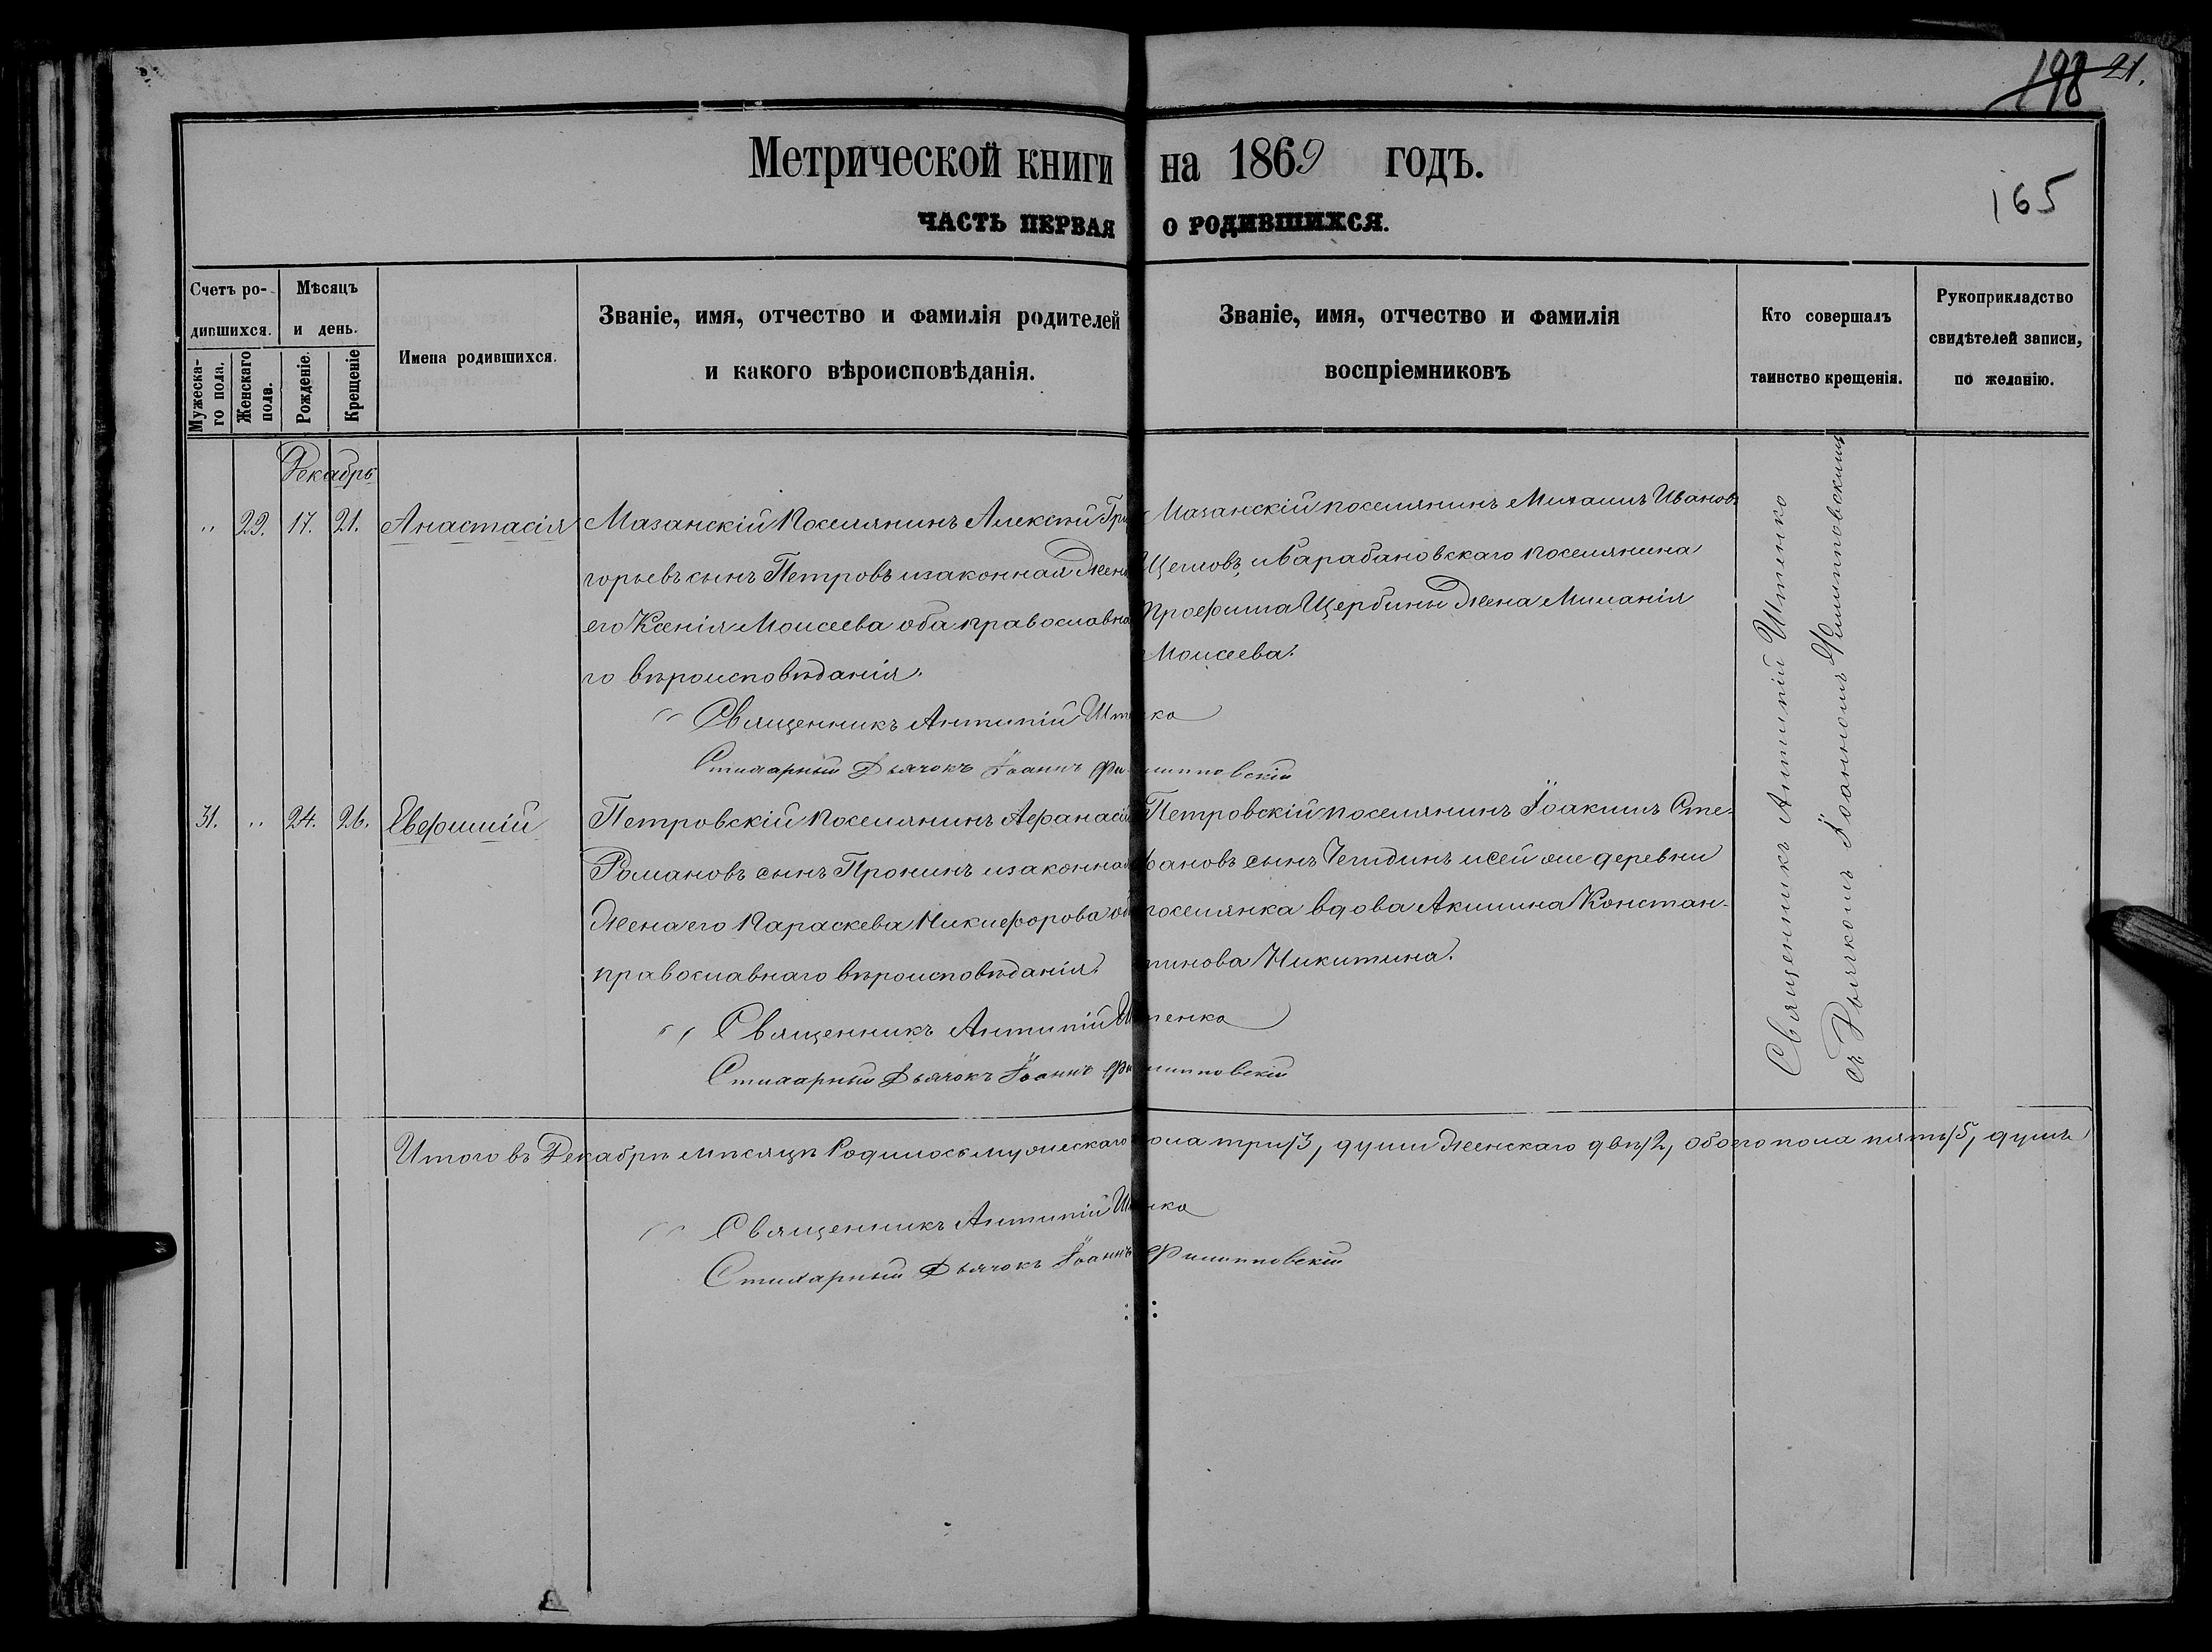 198 21.
165
Метрической книги на 1869 годъ.
ЧАСТЬ ПЕРВАЯ О РОДИВШИХСЯ.
Счетъ ро-
дившихся.
Мужеска-
го пола.
Женскаго
пола.
Мѣсяцъ
и день.
Рожденіе.
Крещеніе
Имена родившихся.
Званіе, имя, отчество и фамилія родителей
и какого вѣроисповѣданія.
Званіе, имя, отчество и фамилія
воспріемниковъ
Кто совершалъ
таинство крещенія.
Рукоприкладство
свидѣтелей записи,
по желанію.
Декабрь
" 22. 17. 21. Анастасія
Мазанскій Поселянинъ Алексѣй Гри
горьевъ сынъ Петровъ и законная Жена
его Ксенія Моисеева оба православна
го вѣроисповѣданія.
Мазанскій поселянинъ Михаилъ Ивановъ
Щегловъ, и Барабановскаго поселянина
Щербины Жена Миланія
Моисеева.
Священникъ Антипій Штенко
Стихарный Дьячокъ Іоаннъ Филипповскій
31. " 24. 26. Евфимій
Петровскій поселянинъ Афанасій
Романовъ сынъ Пронинъ и законная
Жена его Параскева Никифорова об
православнаго вѣроисповѣданія.
Петровскій поселянинъ Іоакимъ Сте-
фановъ сынъ и сей же деревни
поселянка вдова Акилина Констан-
тинова Никитина.
Священникъ Антипій Штенко
Стихарный Дьячокъ Іоаннъ Филипповскій
Священникъ Антипій Штенко
съ Дьячкомъ Іоанномъ Филипповскимъ
Итого въ Декабрѣ мѣсяцѣ Родилось мужескаго пола три /3/ души Женскаго двѣ /2/ обоего пола пять /5/ душъ
Священникъ Антипій Штенко
Стихарный Дьячокъ Іоаннъ Филипповскій